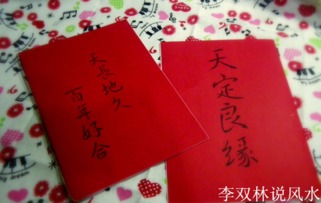 天长地久
百年好合
天定良缘
李双林说风水